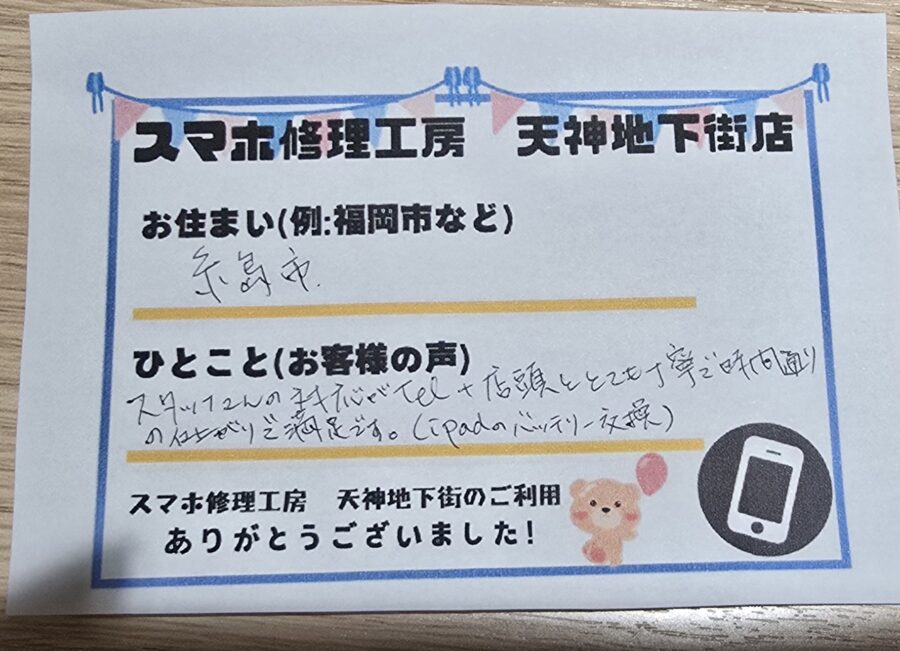 スマホ修理工房　天神地下街店
お住まい(例:福岡市など)
糸島市
ひとこと(お客様の声)
スタッフさんの対応がTel+店頭ととても丁寧で時間通り
の仕上がりで満足です。(ipadのバッテリー交換)
スマホ修理工房　天神地下街のご利用
ありがとうございました!